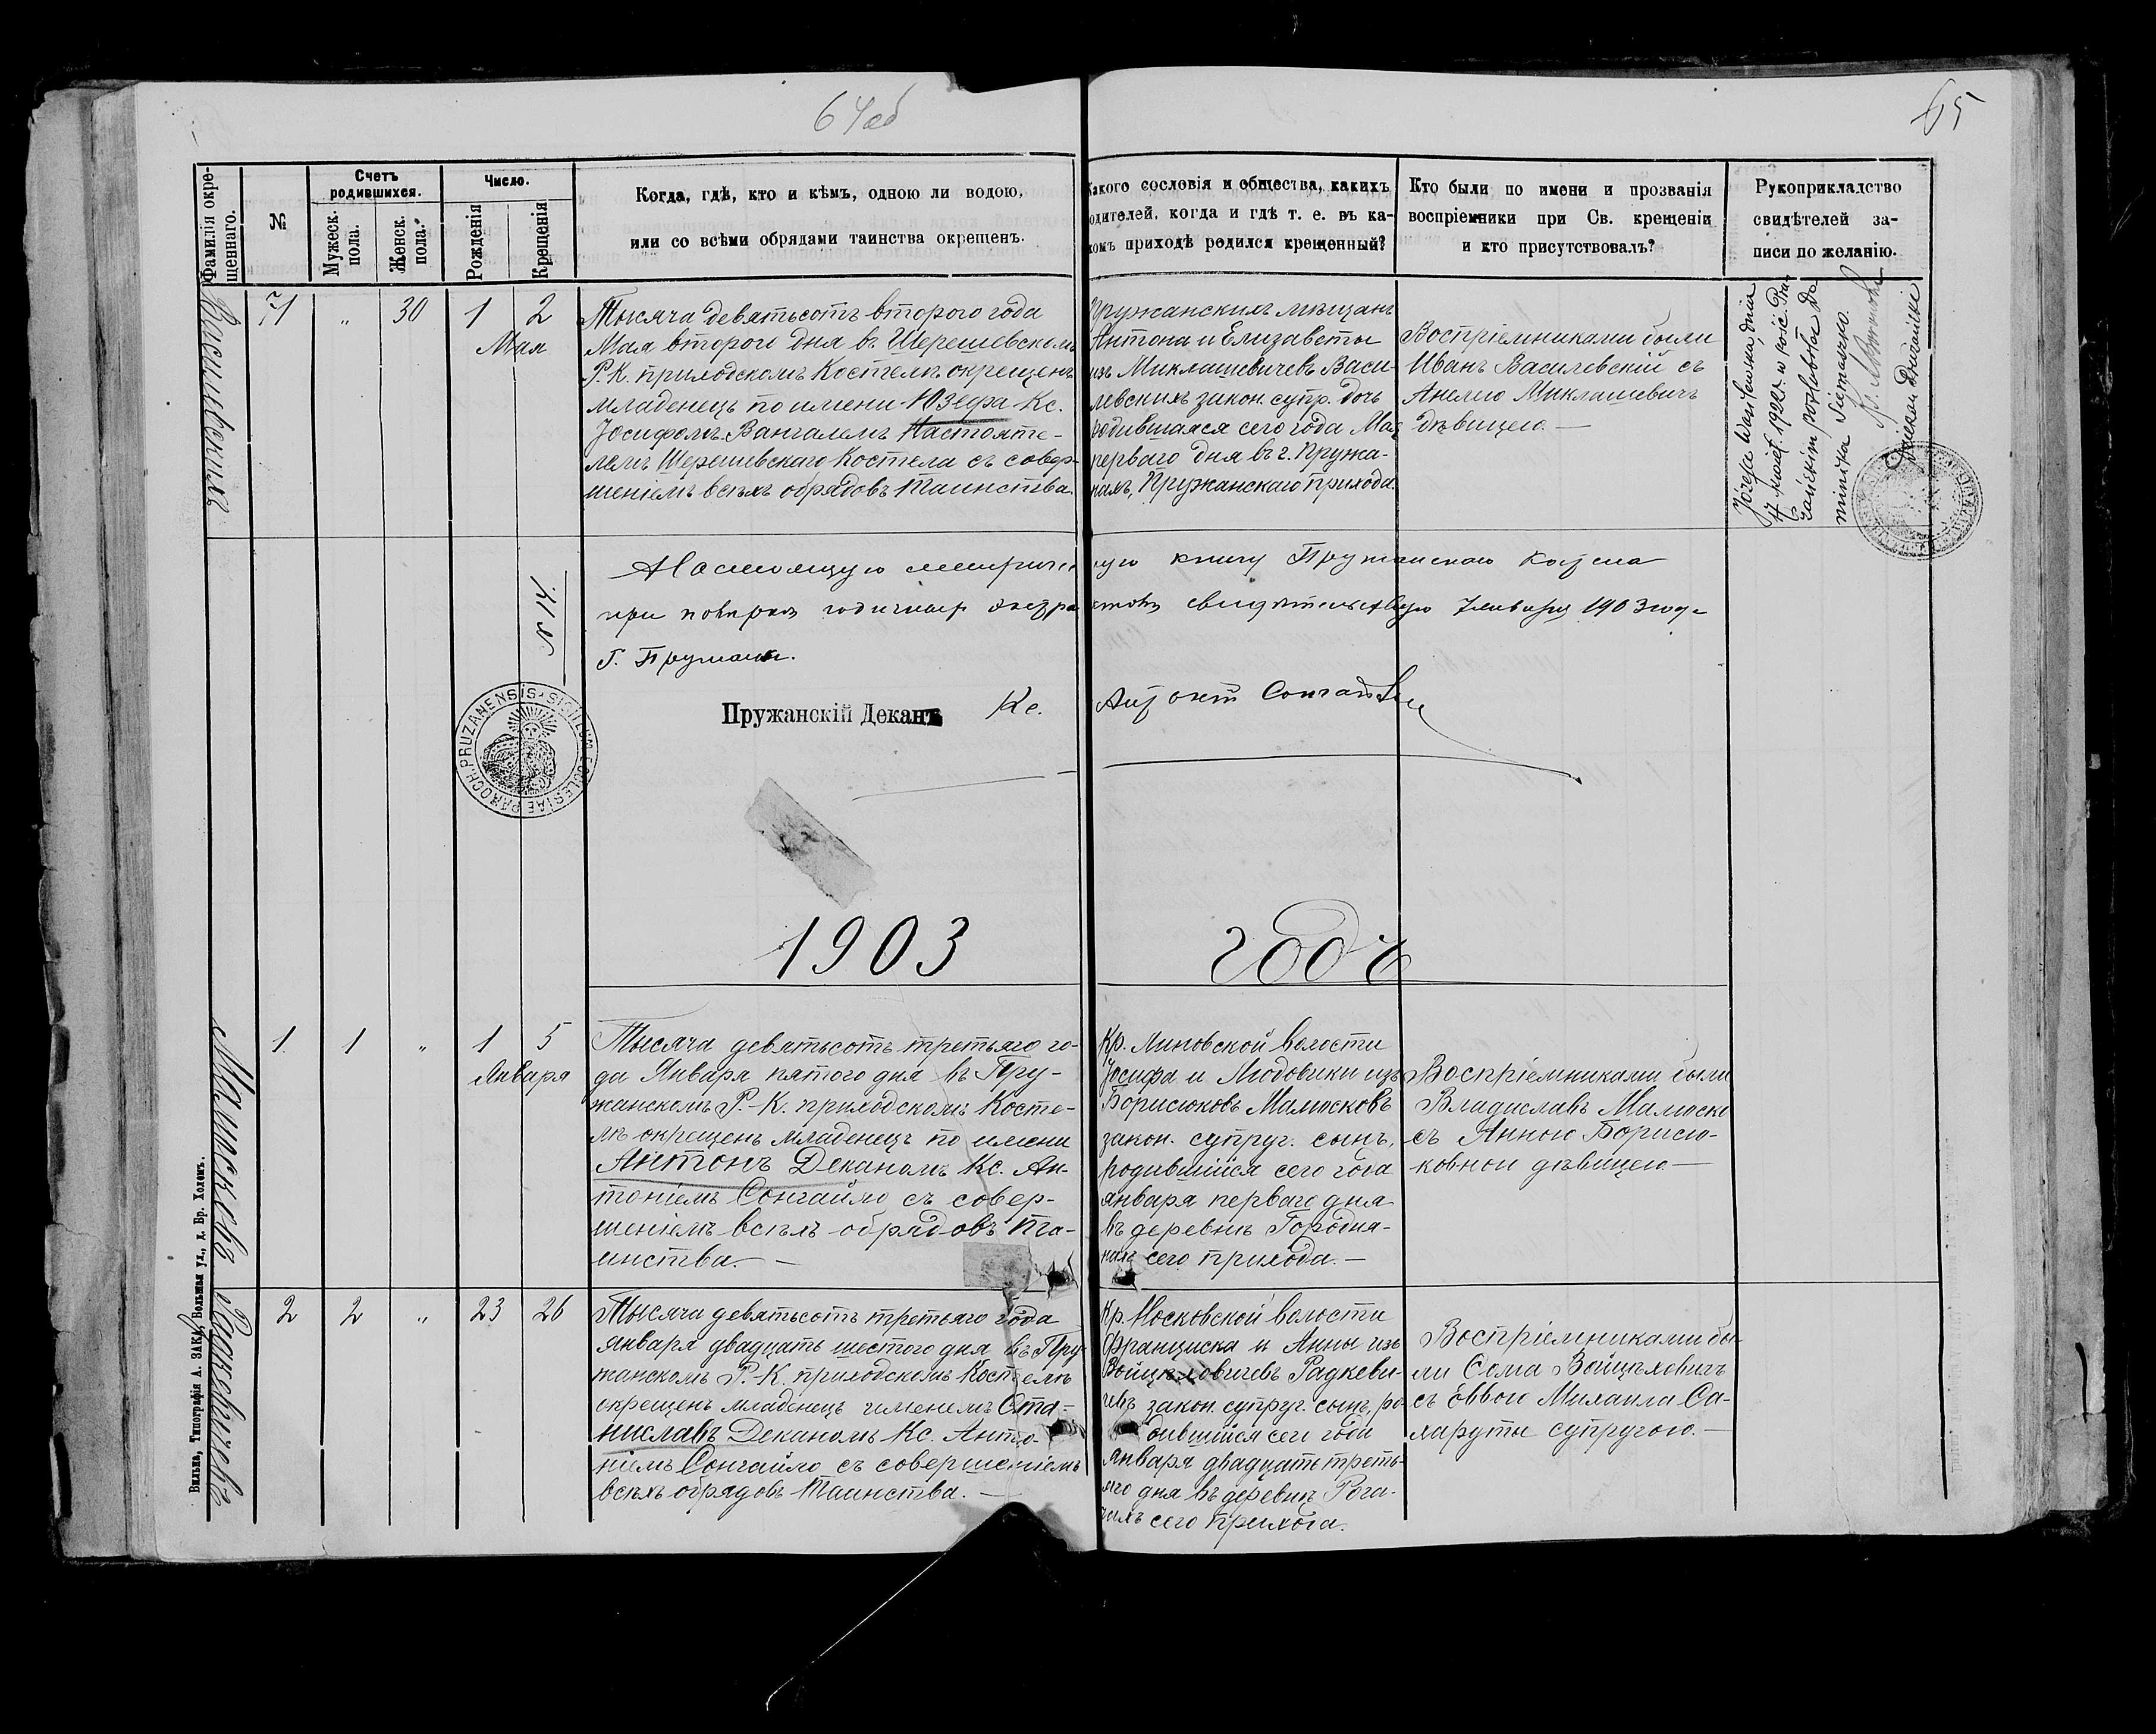 64об
65
Фамилія окре-
щеннаго.
№
Счетъ
родившихся.
Мужеск.
пола.
Женск.
пола.
Число.
Рожденія
Крещенія
Когда, гдѣ, кто и кѣмъ, одною ли водою,
или со всѣми обрядами таинства окрещенъ.
Какого сословія и общества, какихъ
родителей, когда и гдѣ т. е. въ ка-
комъ приходѣ родился крещенный?
Кто были по имени и прозванія
воспріемники при Св. крещеніи
и кто присутствовалъ?
Рукоприкладство
свидѣтелей за-
писи по желанію.
Василевскихъ
71 „ 30 1 2
Мая
Тысяча девятьсотъ второго года
Мая второго дня въ Шерешевскомъ
Р. К. приходскомъ Костелѣ окрещенъ
младенецъ по имени Юзефа Кс.
Іосифомъ Вангалемъ Настояте-
лемъ Шерешевскаго Костела съ совер-
шеніемъ всѣхъ обрядовъ Таинства.
Пружанскихъ мѣщанъ
Антона и Елизаветы
изъ Миклашевичевъ Васи-
левскихъ закон. супр. дочь
родившаяся сего года Мая
перваго дня въ г. Пружа-
нахъ, Пружанскаго прихода.
Воспріемниками были
Иванъ Василевскій съ
Анелію Миклашевичъ
дѣвицею.—
Józefa Wasilewska, dnia
17 1922 r. w kośc. Pru
żańskim poślubiona Do
minika Siemaszko.
Dziekan Prużański
Настоящую метричес
ную книгу Пружанскаго
при повѣркѣ годичныхъ экстра
ктовъ свидѣтельствую января 1903 года
Г. Пружаны.
№ 14.
PAROCH. PRUZANENSIS SIGILLUM ECCLESIAE
Пружанскій Деканъ Кс.
1903 годъ
Малысковъ
1 1 „ 1 5
Января
Тысяча девятьсотъ третьяго го-
да Января пятого дня въ Пру-
жанскомъ Р.-К. приходскомъ Косте-
лѣ окрещенъ младенецъ по имени
Антонъ Деканомъ Кс. Ан-
тоніемъ Сонгайло съ совер-
шеніемъ всѣхъ обрядовъ Та-
инства.—
Кр. Линовской волости
Іосифа и Людовики изъ
Борисюковъ Малысковъ
закон. супруг. сынъ,
родившійся сего года
января перваго дня
въ деревнѣ Городня-
нахъ сего прихода.—
Воспріемниками были
Владиславъ Малыско
съ Анною Борисю-
ковной дѣвицею.—
Радкевичевъ
2 2 „ 23 26
Тысяча девятьсотъ третьяго года
января двадцать шестого дня въ Пру-
жанскомъ Р.-К. приходскомъ Костелѣ
окрещенъ младенецъ именемъ Ста-
ниславъ Деканомъ Кс. Анто-
ніемъ Сонгайло съ совершеніемъ
всѣхъ обрядовъ Таинства.—
Кр. Носковской волости
Франциска и Анны изъ
Войцѣховичевъ Радкеви-
чевъ закон. супруг. сынъ, ро-
дившійся сего года
января двадцать треть-
яго дня въ деревнѣ Рога-
чахъ сего прихода.
Воспріемниками бы-
ли Ѳома Войцѣховичъ
съ Еввою Михаила Са-
харуты супругою.—
Вильна, Типографія А. ЗАКА, Вольная ул., д. Бр. Холемъ.